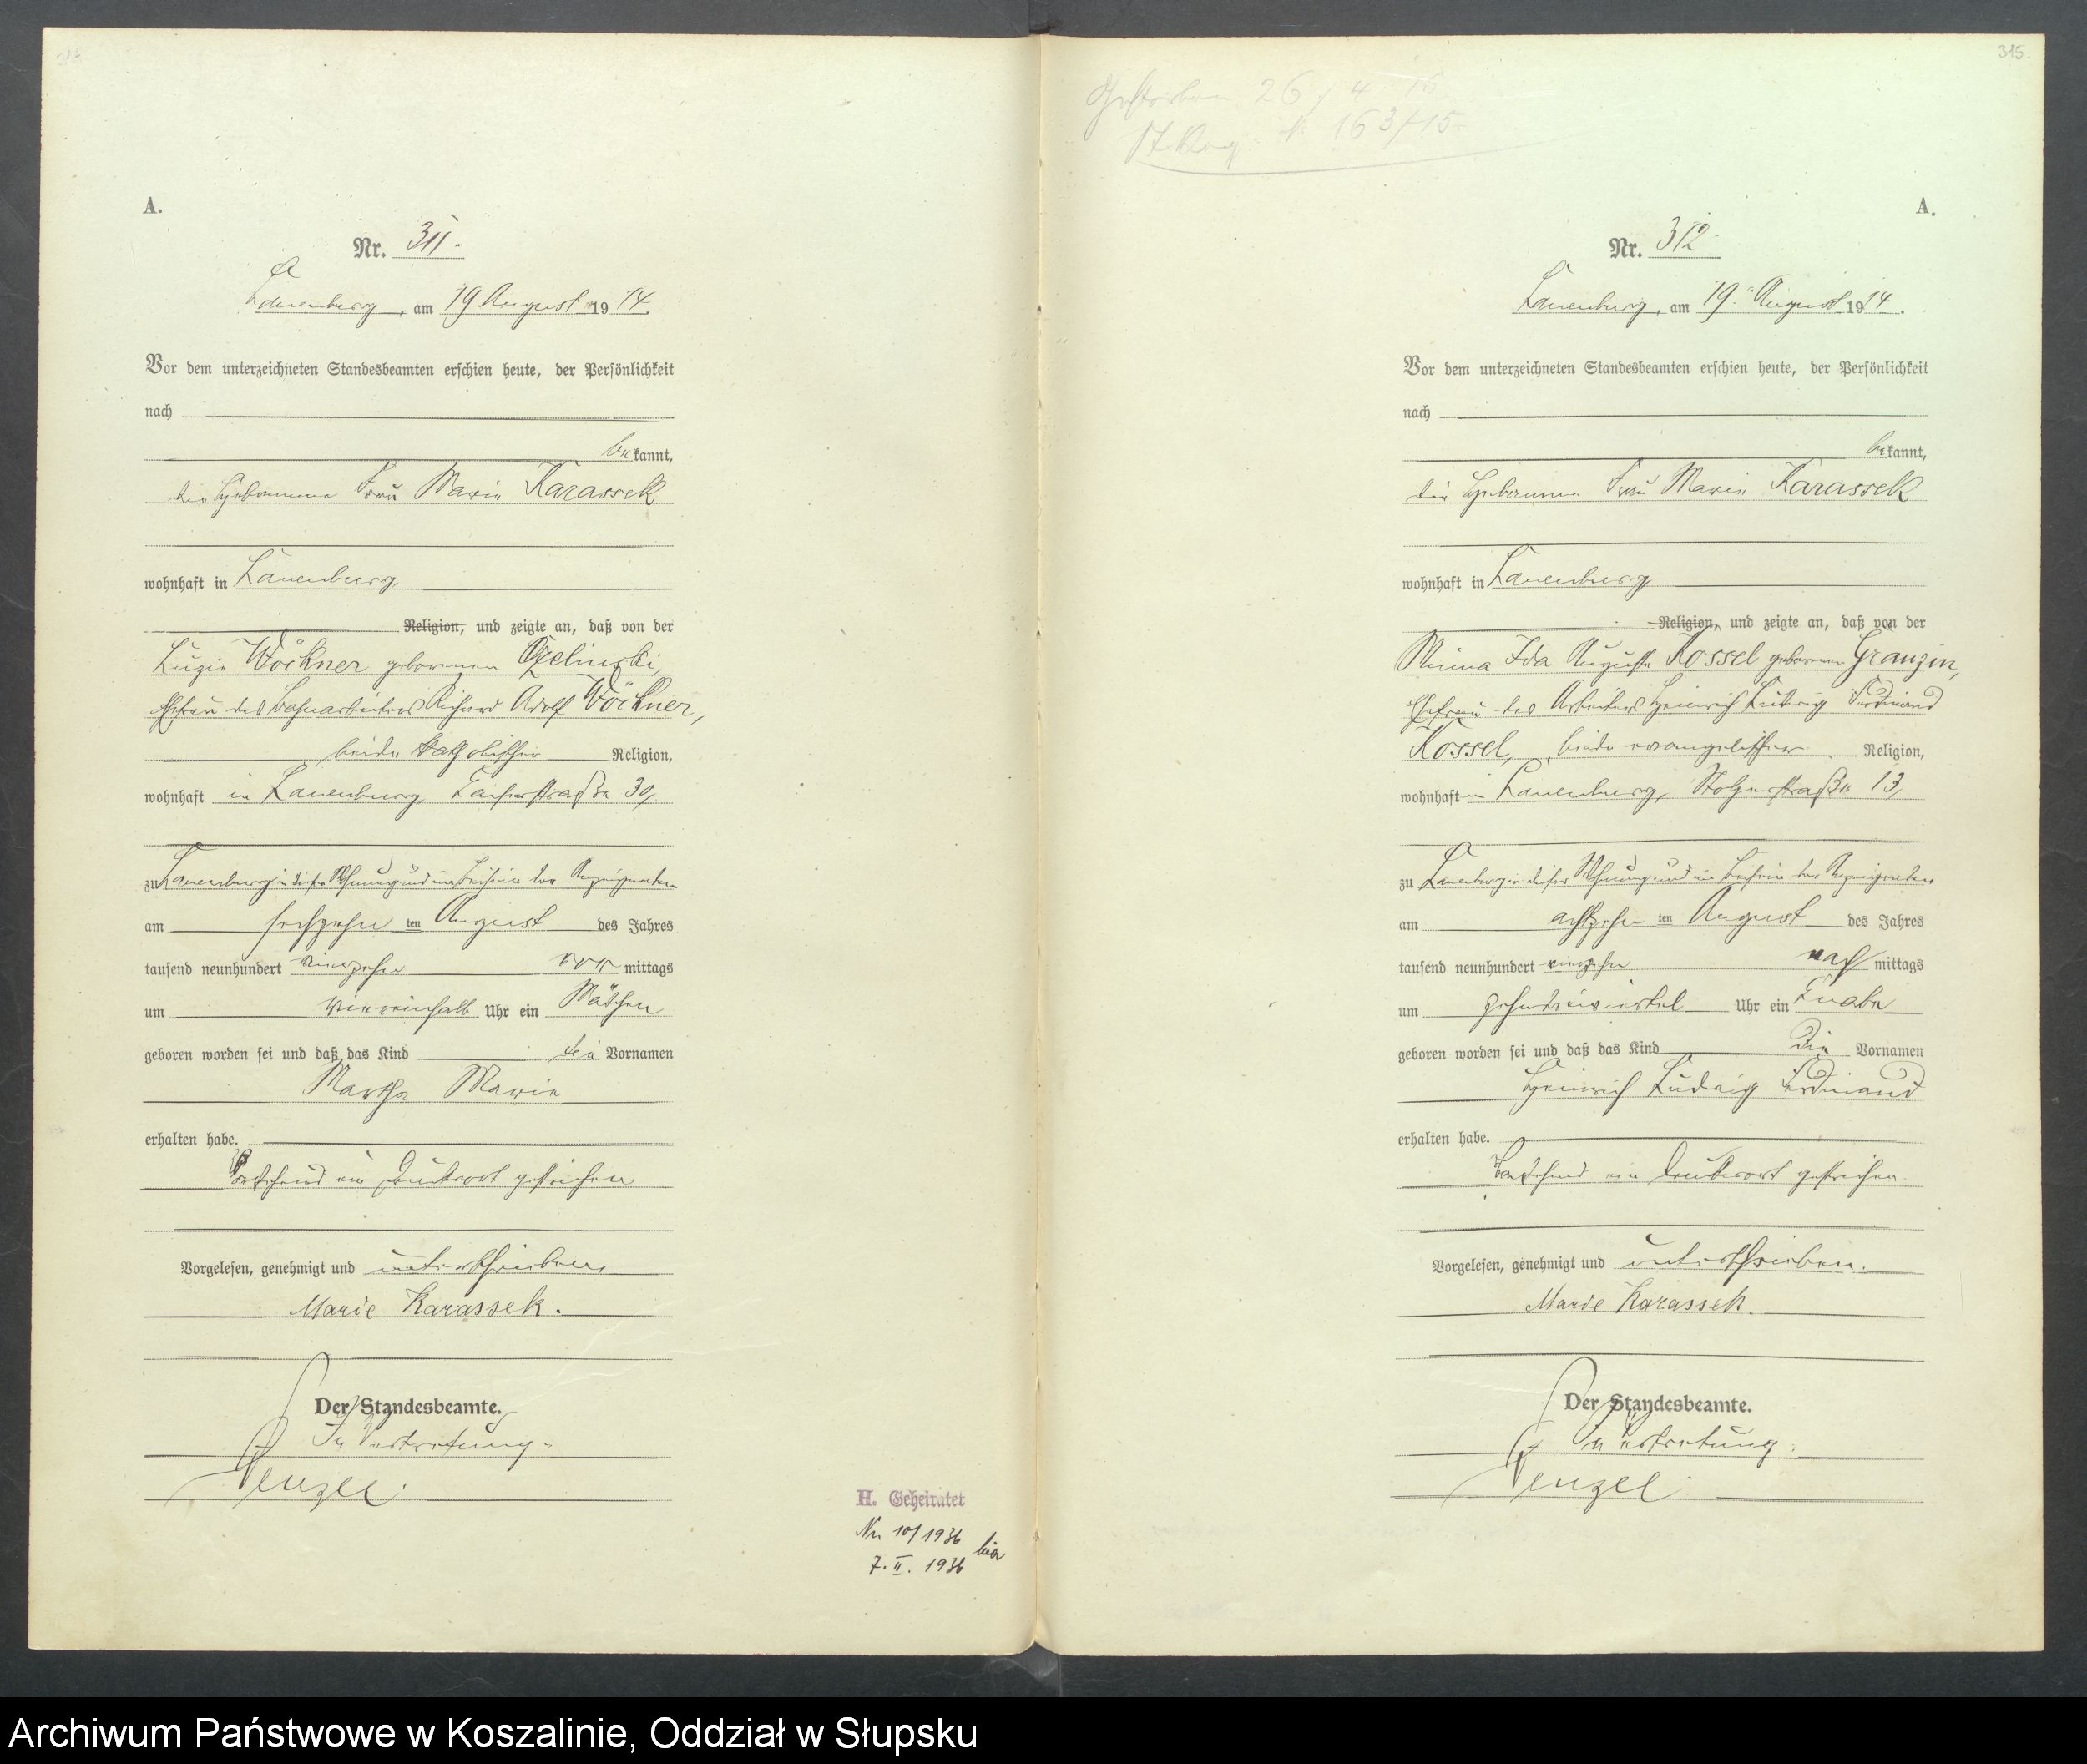 A.
Nr. 311.
Lauenburg, am 19 August 1914
Vor dem unterzeichneten Standesbeamten erschien heute, der Persönlichkeit
nach
bekannt,
die Hebamme Frau Marie Karassek
wohnhaft in Lauenburg
Religion, und zeigte an, daß von der
Luzie Wöckner geborenen Czelinski,
Ehefrau des Bahnarbeiters Richard Adolf Wöckner,
beide katholischer Religion,
wohnhaft in Lauenburg, straße 30,
zu Lauenburg in dieser Wohnung und im Beisein der Anzeigenden
am sechzehn ten August des Jahres
tausend neunhundert vierzehn vor mittags
um viereinhalb Uhr ein Mädchen
geboren worden sei und daß das Kind die Vornamen
Martha Marie
erhalten habe.
Vorstehend ein Druckwort gestrichen
Vorgelesen, genehmigt und unterschrieben
Marie Karassek.
Der Standesbeamte.
In Vertretung.
Wenzel.
H. Geheiratet
Nr. 10/1936
7. II. 1936 hier
315.
Gestorben 26/4 15
St. Reg. N. 163/15
A.
Nr. 312
Lauenburg, am 19. August 1914.
Vor dem unterzeichneten Standesbeamten erschien heute, der Persönlichkeit
nach
bekannt,
die Hebamme Frau Marie Karassek
wohnhaft in Lauenburg
Religion, und zeigte an, daß von der
Minna Ida Auguste Kossel geborenen Granzin,
Ehefrau des Arbeiters Heinrich Ludwig Ferdinand
Kossel, beide evangelischer Religion,
wohnhaft in Lauenburg, Stolperstraße 13,
zu Lauenburg in dieser Wohnung und im Beisein der Anzeigenden
am achtzehn ten August des Jahres
tausend neunhundert vierzehn nach mittags
um zehndreiviertel Uhr ein Knabe
geboren worden sei und daß das Kind die Vornamen
Heinrich Ludwig Ferdinand
erhalten habe.
Vorstehend ein Druckwort gestrichen.
Vorgelesen, genehmigt und unterschrieben.
Marie Karassek.
Der Standesbeamte.
In Vertretung.
Wenzel.
Archiwum Państwowe w Koszalinie, Oddział w Słupsku